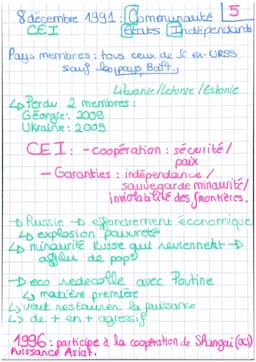 8 décembre 1991 : Communauté 5
CEI États Indépendants
Pays membres : tous ceux de l'ex-URSS
sauf les pays Balt.
Lituanie/Letonie/Estonie
↳ Perdu 2 membres :
Géorgie : 2009
Ukraine : 2009
CEI : - coopération : sécurité/
paix
- Garanties : indépendance/
sauvegarde minorité/
inviolabilité des frontières.
→ Russie → effondrement économique
↳ explosion pauvreté
↳ minorité Russe qui reviennent →
afflu de pop°
→ eco redecolle avec Poutine
↳ matière première
↳ veut restaurer la puissance
↳ de + en + agressif
1996 : participe à la coopération de Shangai (OCS)
Puissance Asiat.